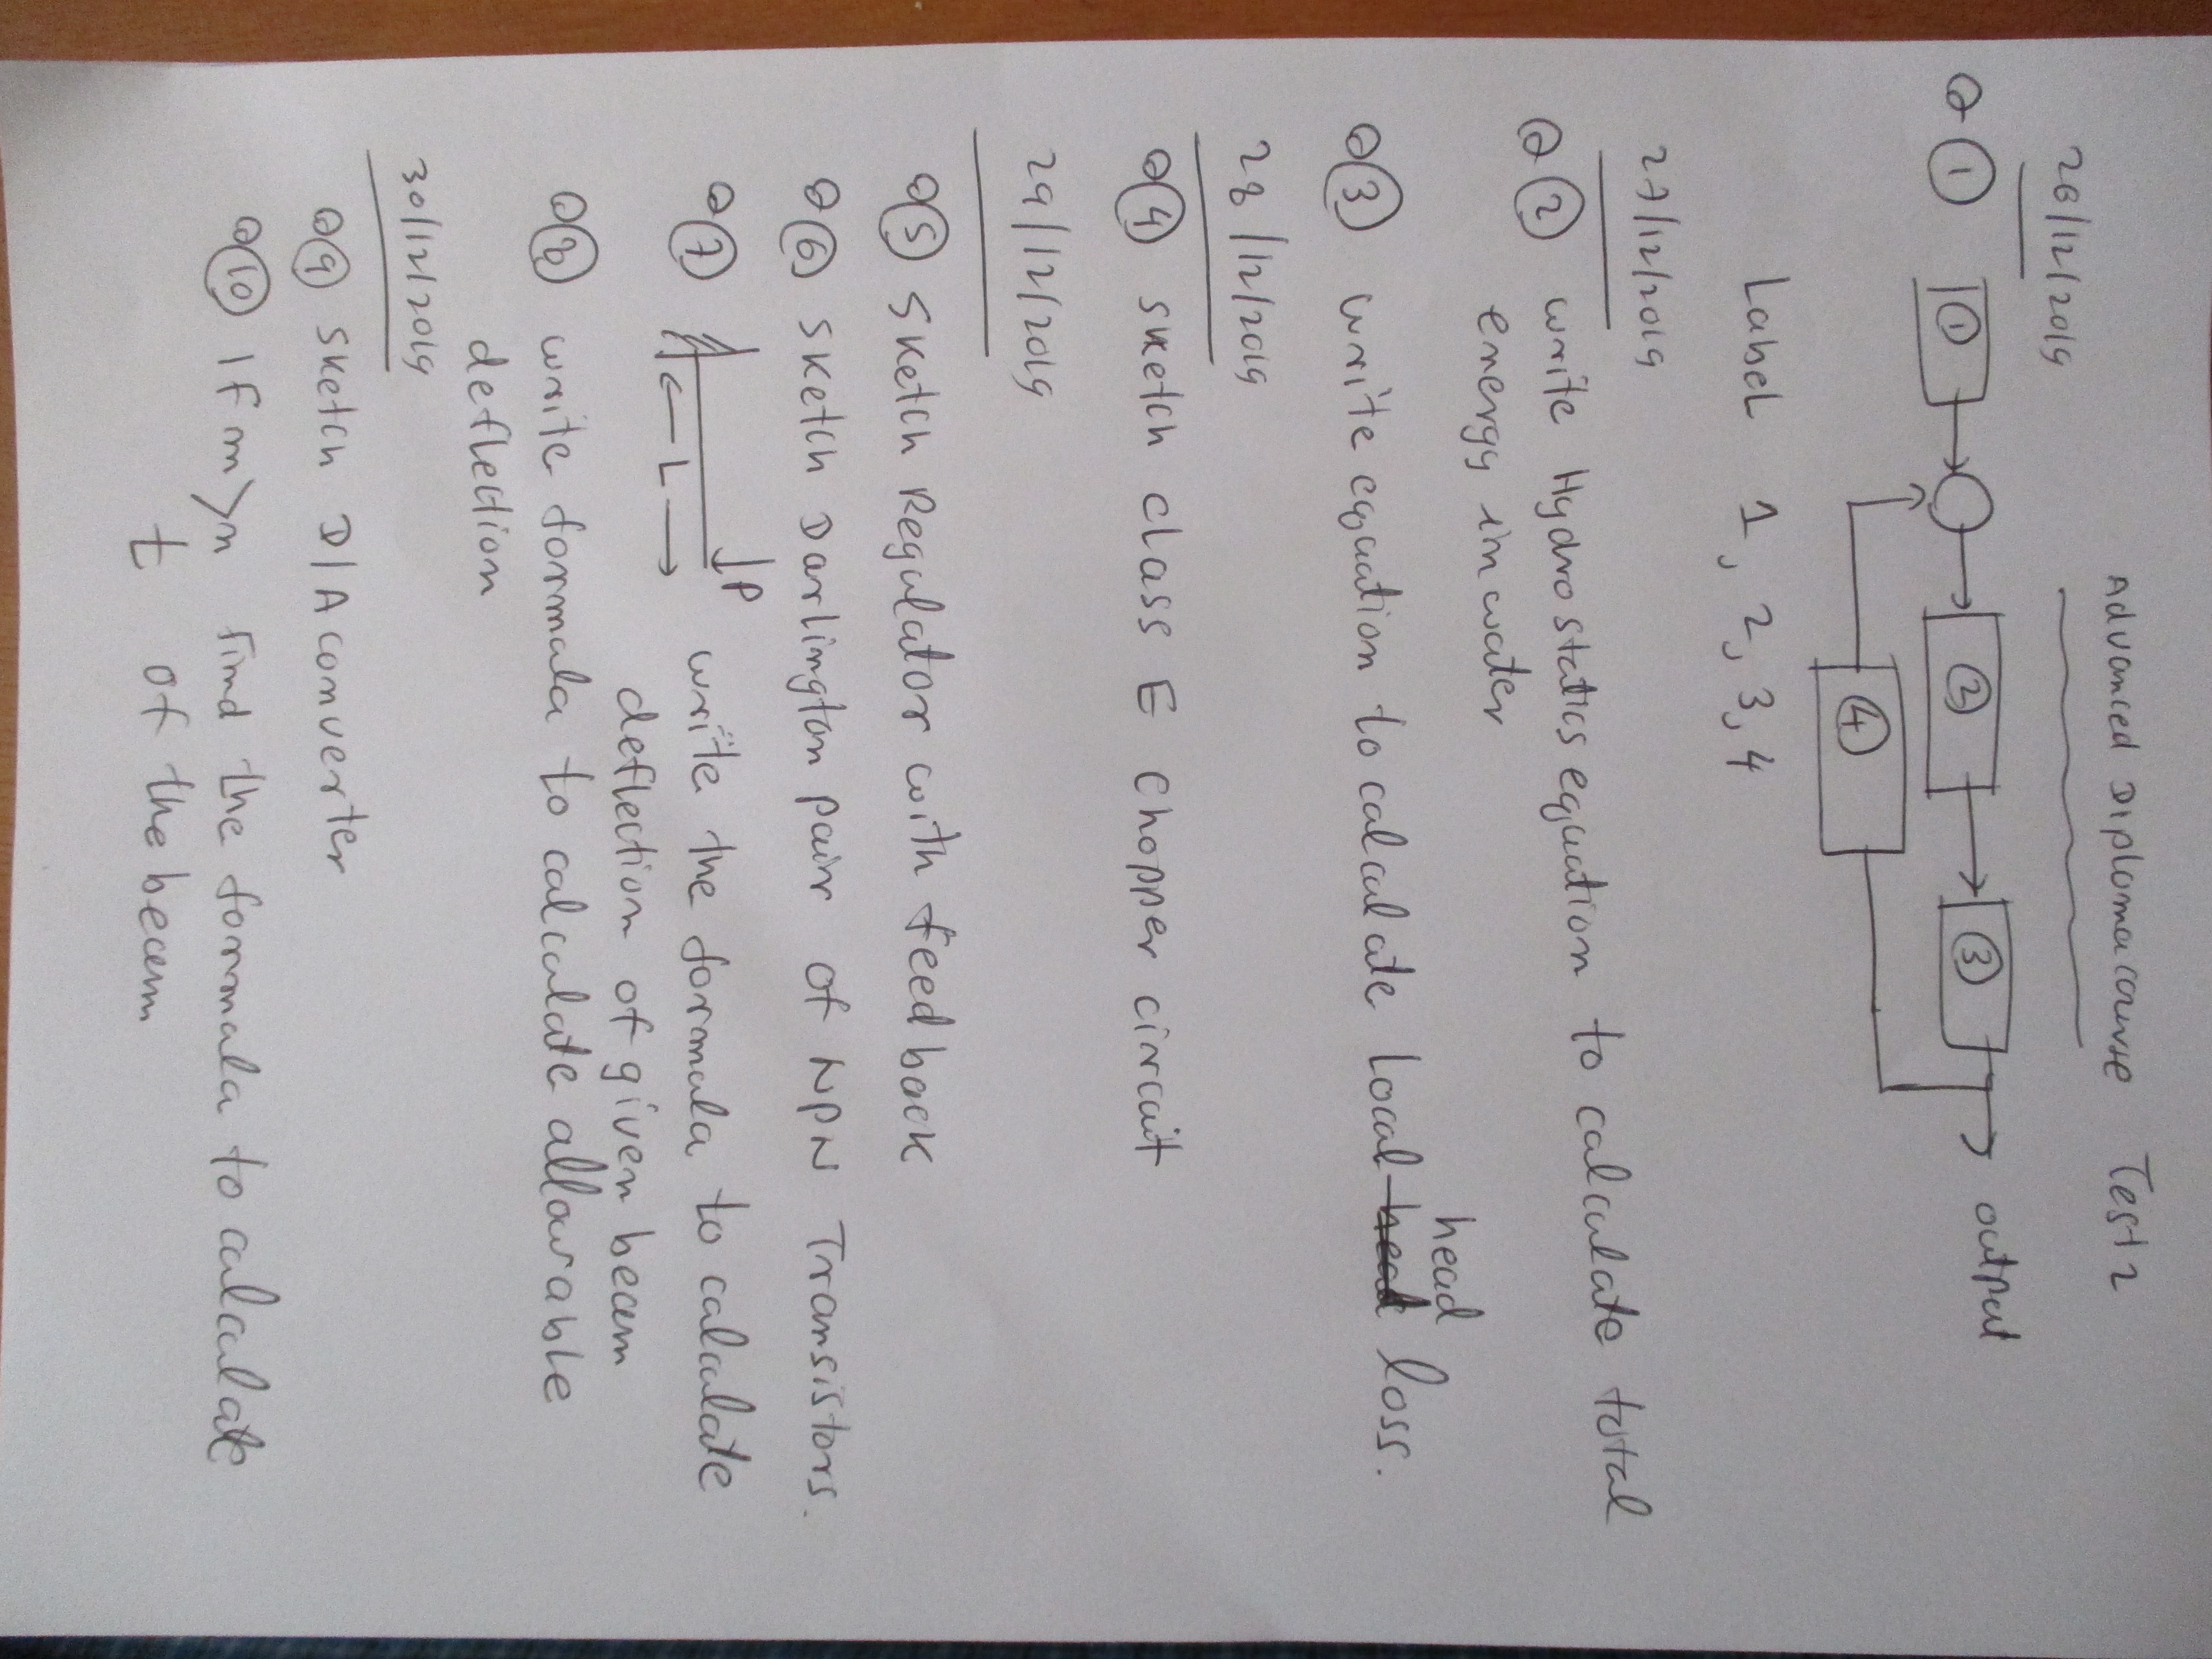 Advanced Diploma course Test 2
26/12/2019
Q ① ① ② ③ output
④
Label 1, 2, 3, 4
27/12/2019
Q ② write Hydrostatics equation to calculate total
energy in water
head
Q ③ write equation to calculate local head loss.
28/12/2019
Q ④ sketch class E chopper circuit
29/12/2019
Q ⑤ sketch Regulator with feed back
Q ⑥ sketch Darlington pair of NPN Transistors.
Q ⑦ P write the formula to calculate
L deflection of given beam
Q ⑧ write formula to calculate allowable
deflection
30/12/2019
Q ⑨ sketch D/A converter
Q ⑩ If m>n find the formula to calculate
t of the beam